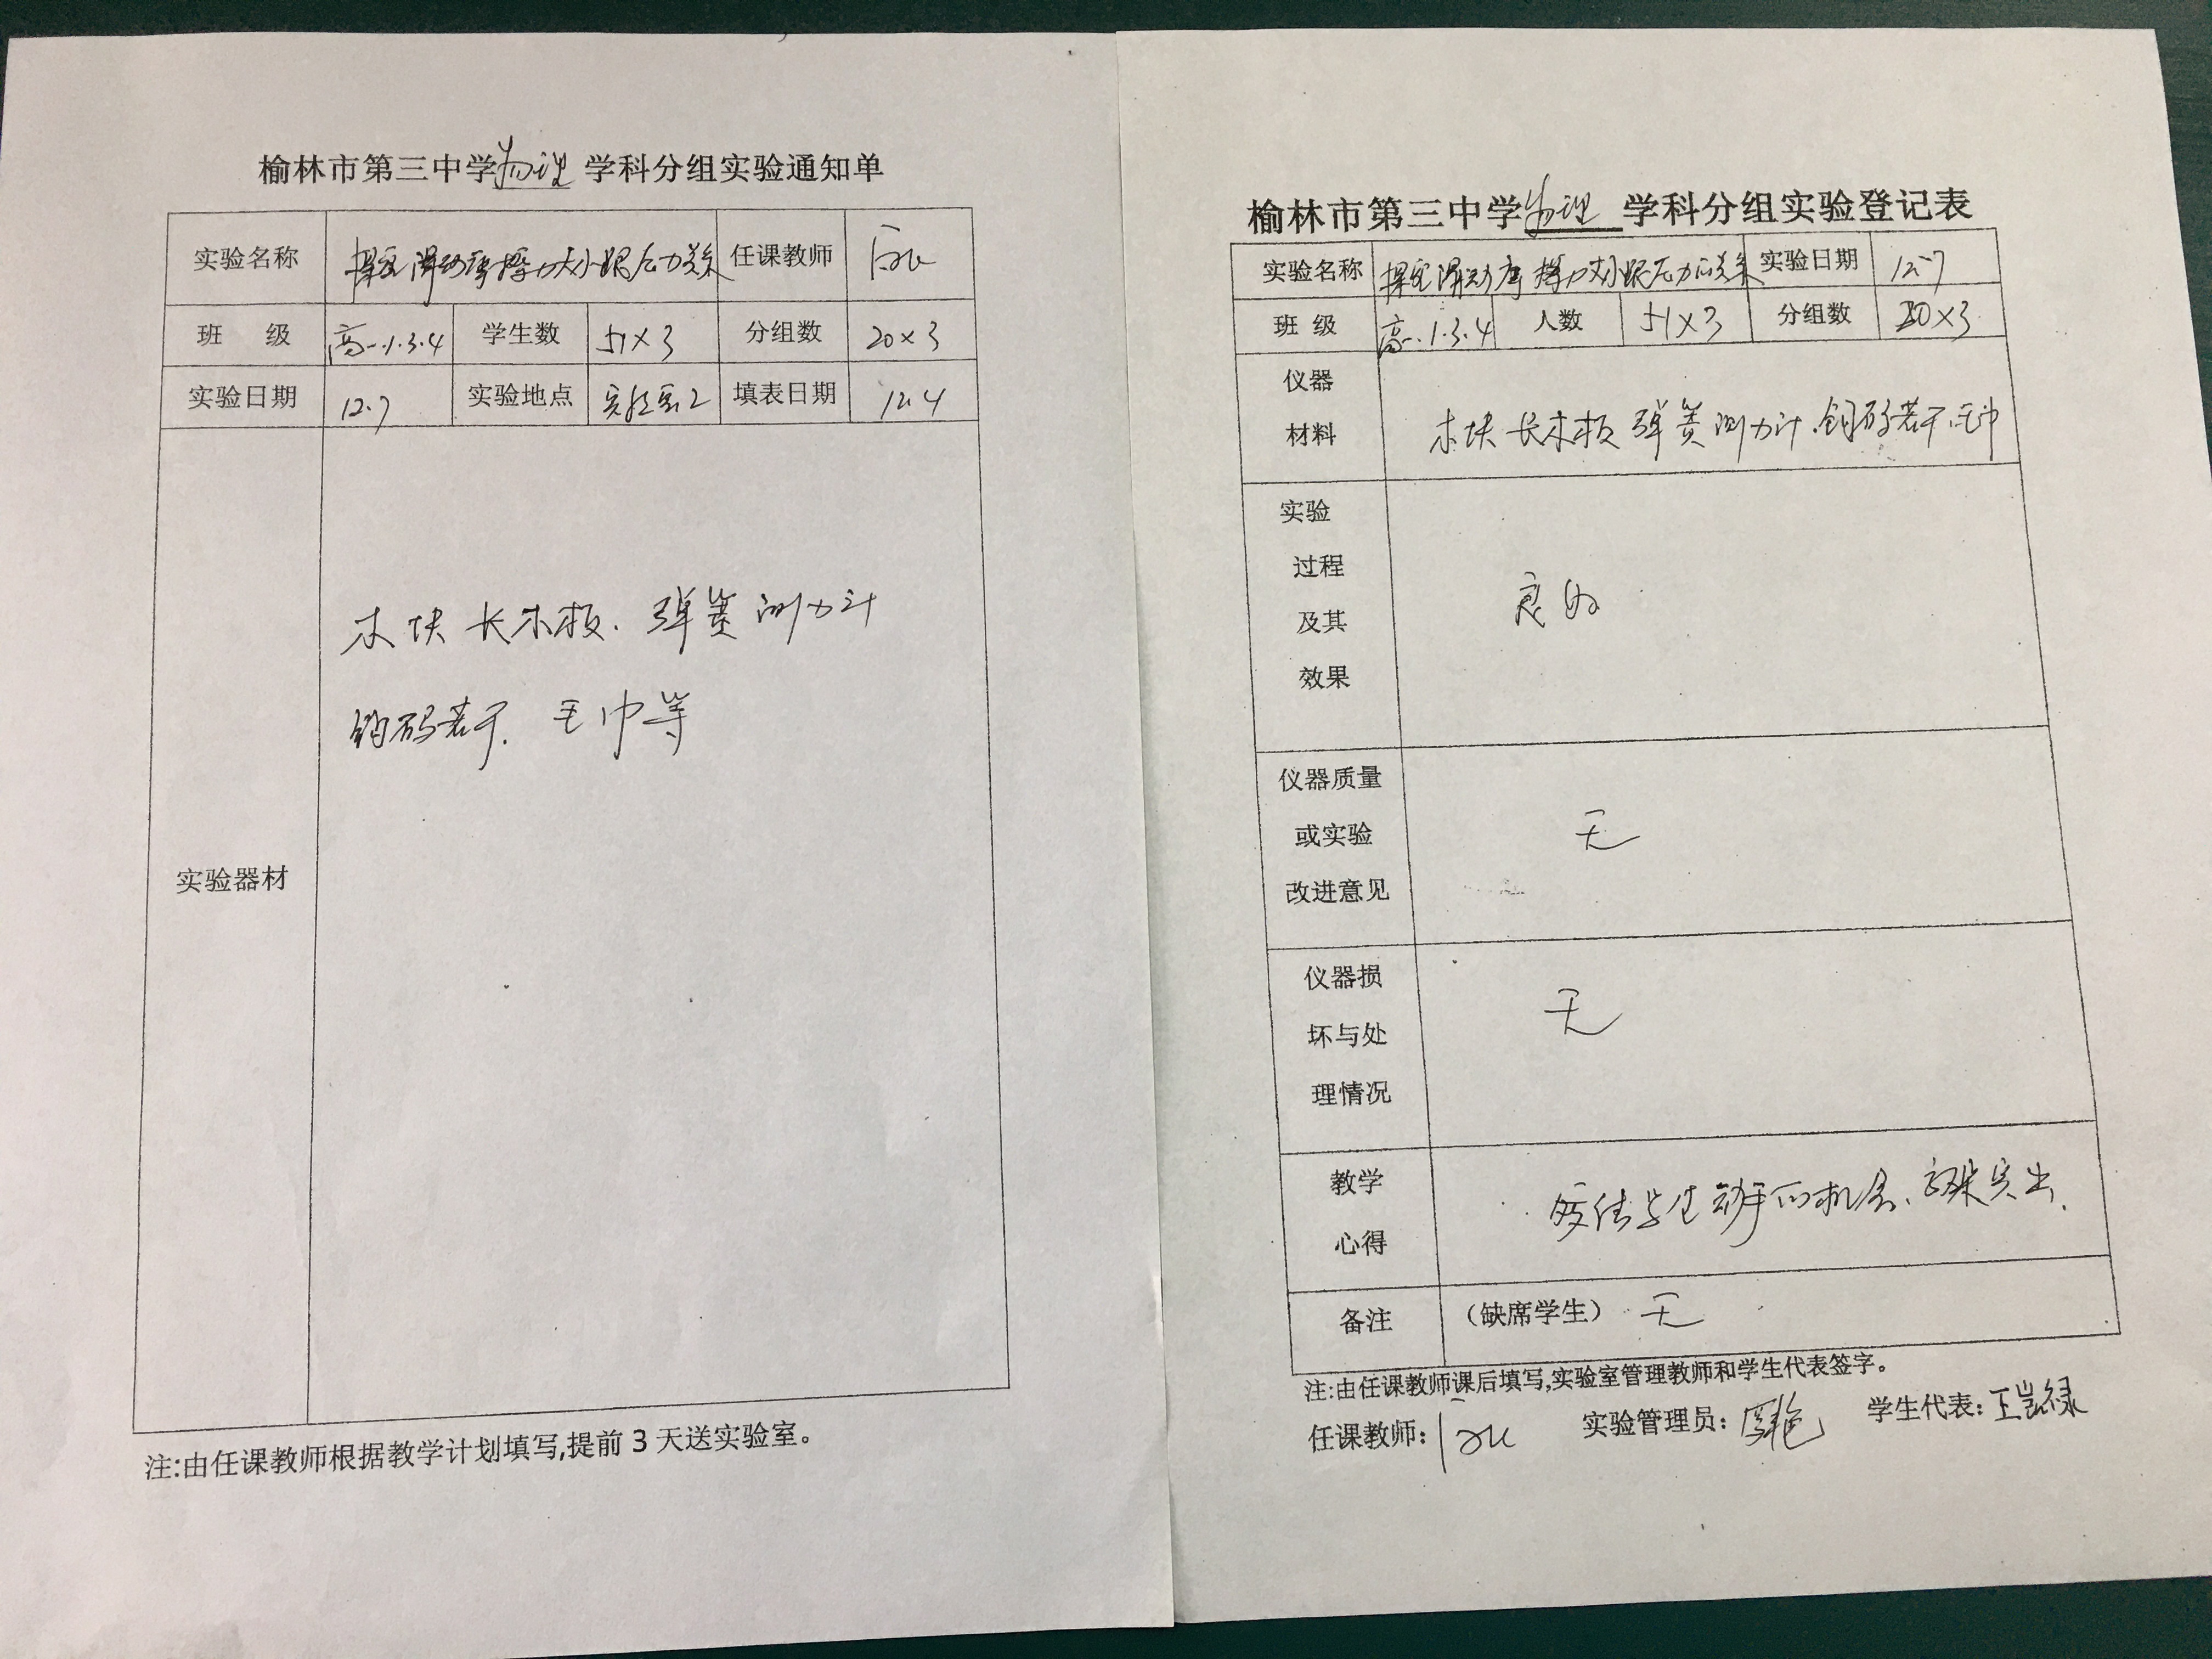 榆林市第三中学物理学科分组实验通知单
实验名称 探究滑动摩擦力大小跟压力关系 任课教师
班 级 高一.1.3.4 学生数 51×3 分组数 20×3
实验日期 12.7 实验地点 实验室2 填表日期 12.4
实验器材
木块 长木板. 弹簧测力计
钩码若干. 毛巾等
注:由任课教师根据教学计划填写,提前 3 天送实验室。
榆林市第三中学物理学科分组实验登记表
实验名称 探究滑动摩擦力大小跟压力的关系 实验日期 12.7
班 级 高一.1.3.4 人数 51×3 分组数 20×3
仪器
材料
木块 长木板 弹簧测力计.钩码若干.毛巾
实验
过程
及其
效果
良好
仪器质量
或实验
改进意见
无
仪器损
坏与处
理情况
无
教学
心得
学生动手的机会、效果突出.
备注 (缺席学生) 无
注:由任课教师课后填写,实验室管理教师和学生代表签字。
任课教师: 实验管理员: 学生代表: